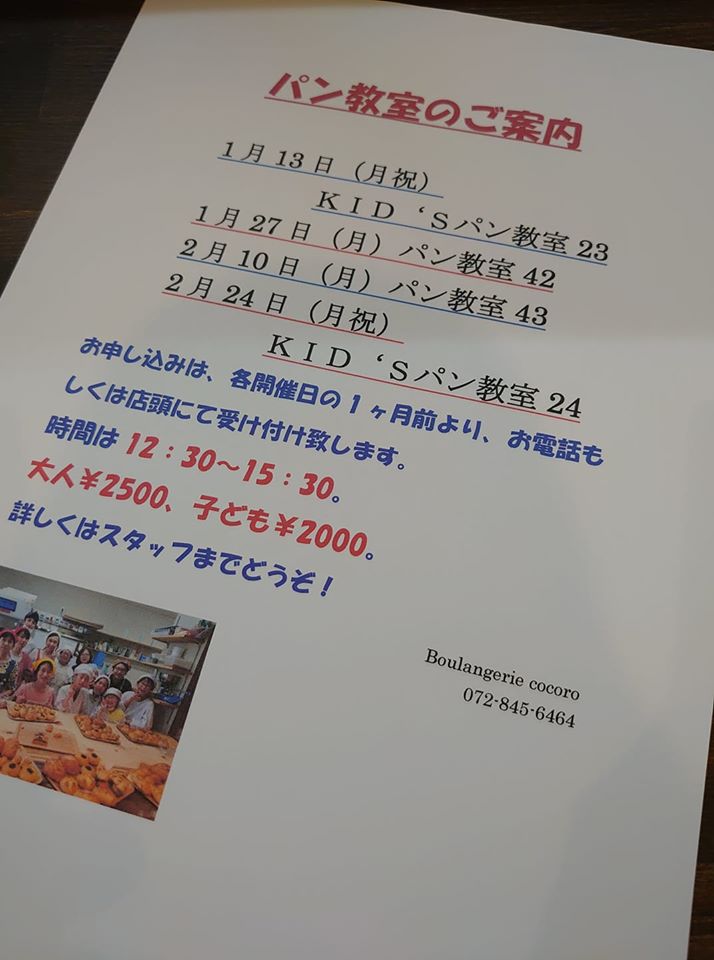 パン教室のご案内
1月13日（月祝）
ＫＩＤ‘Ｓパン教室23
1月27日（月）パン教室42
2月10日（月）パン教室43
2月24日（月祝）
ＫＩＤ‘Ｓパン教室24
お申し込みは、各開催日の1ヶ月前より、お電話も
しくは店頭にて受け付け致します。
時間は12：30～15：30。
大人￥2500、子ども￥2000。
詳しくはスタッフまでどうぞ！
Boulangerie cocoro
072-845-6464